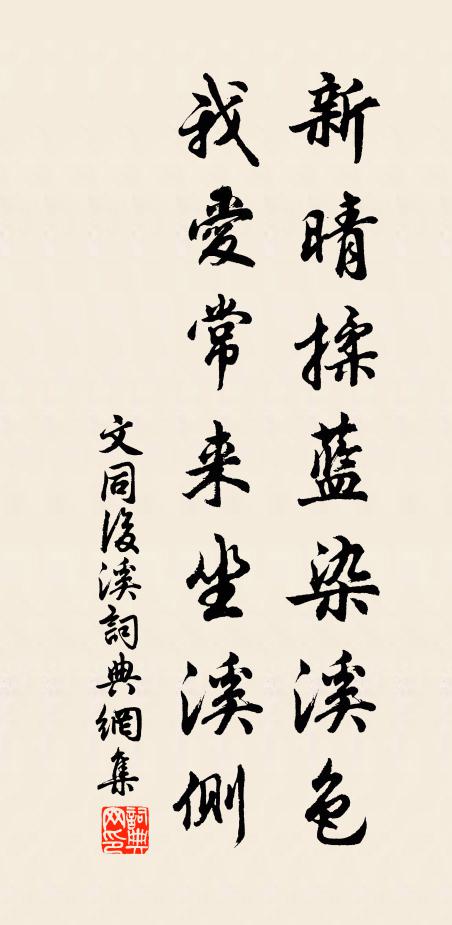 新晴揉藍染溪色
我愛常来坐溪側
文同後溪詞典網集
詞典網印